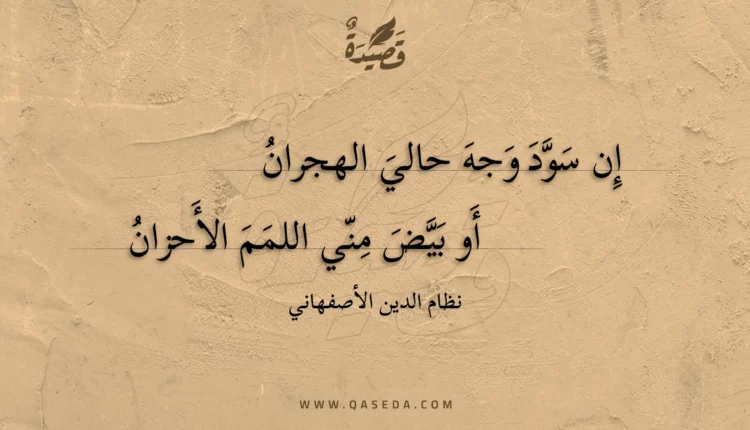 قَصِيدَةٌ
إِن سَوَّدَ وَجهَ حاليَ الهجرانُ
أَو بَيَّضَ مِنّي اللمَمَ الأَحزانُ
نظام الدين الأصفهاني
WWW.QASEDA.COM